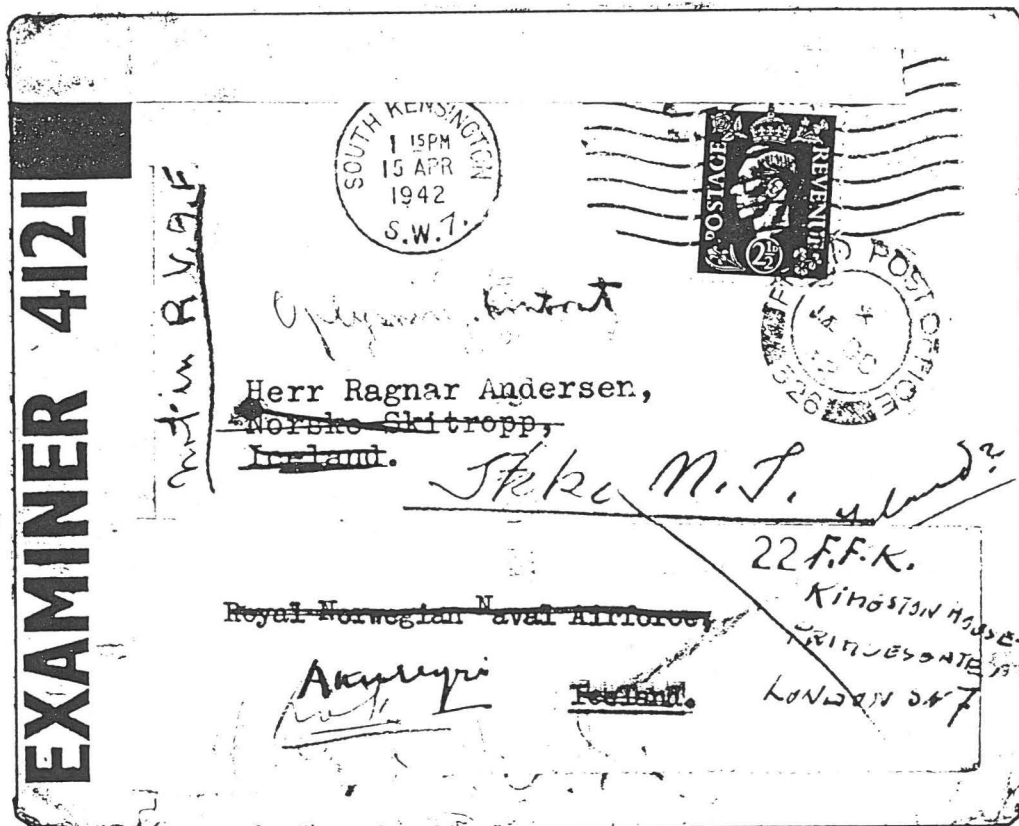 EXAMINER 4121
SOUTH KENSINGTON
1 15PM
15 APR
1942
S.W.7.
POSTAGE REVENUE
2½D
FIELD POST OFFICE
926
R.N.A.F
Herr Ragnar Andersen,
Norske Skitropp,
Iceland.
Ikke N.I.
22 F.F.K.
KINGSTON HOUSE
PRINCESGATE
LONDON SW7
Royal Norwegian Naval Airforce,
Akureyri
Iceland.